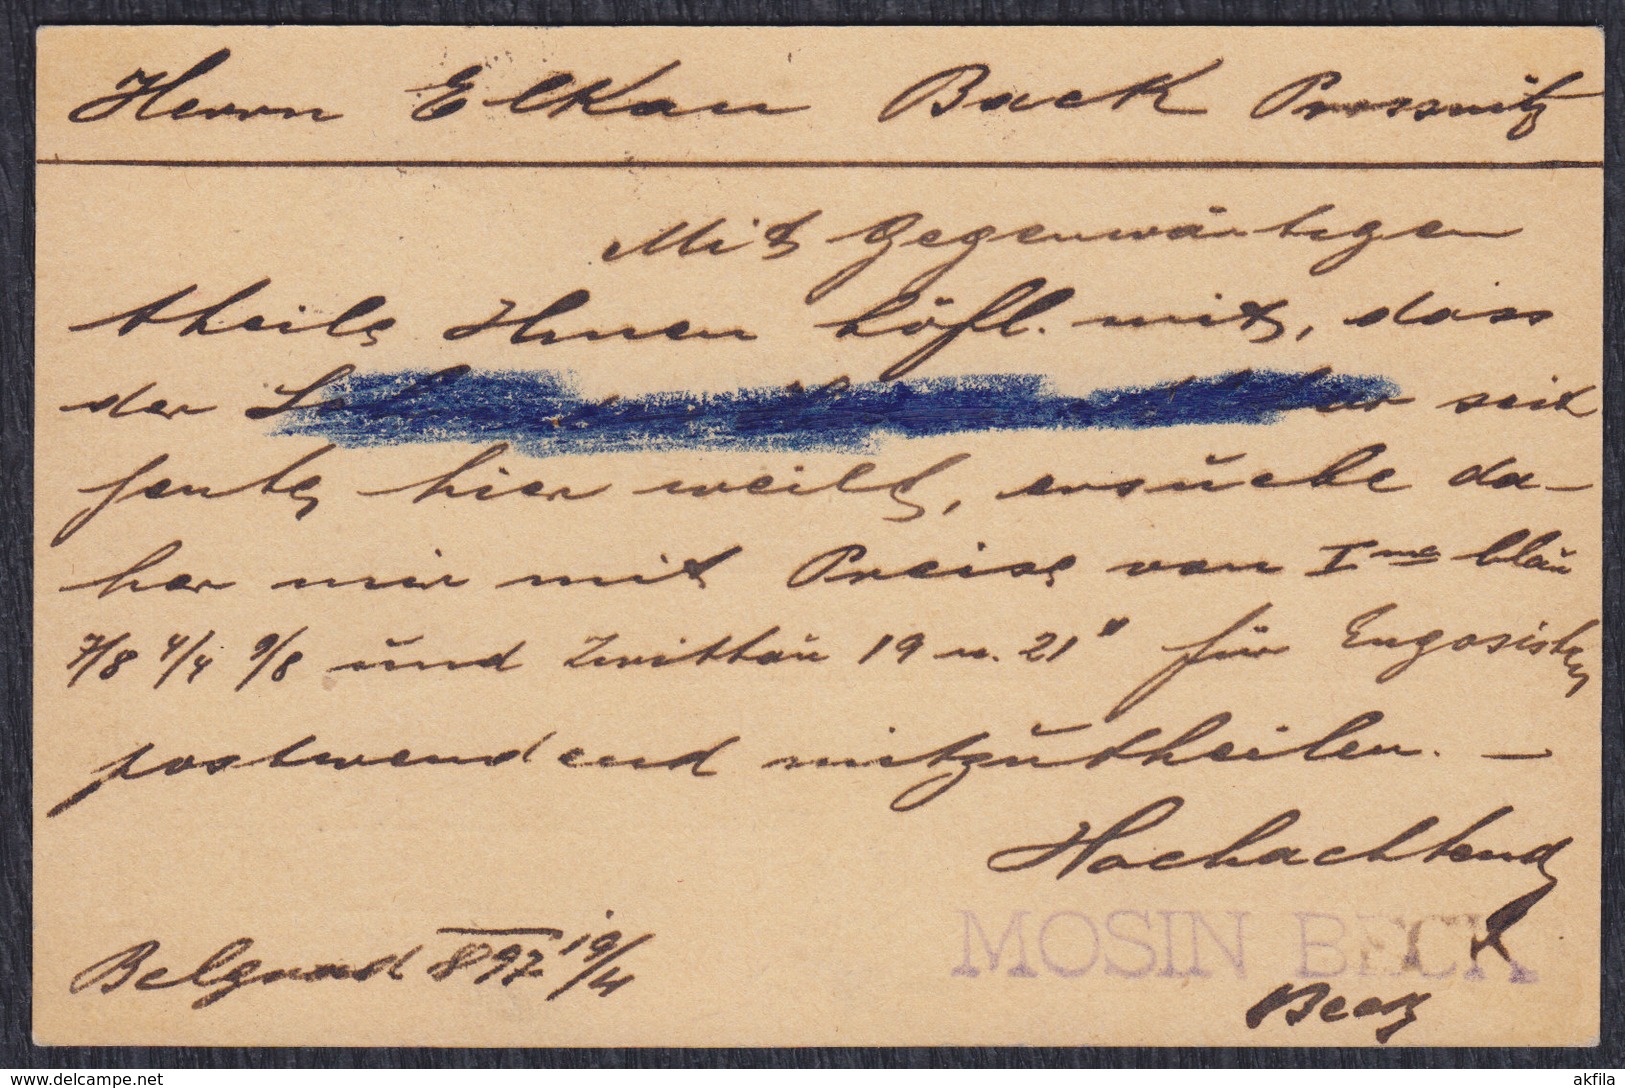 Herrn Elkan Back Prossnitz
Mit Gegenwärtigen
theile Ihnen höfl. mit, dass
der seit
heute hier weilt, ersuche da-
her mir mit Preise von Ima blau
7/8 4/4 9/8 und Zwittau 19 u. 21" für
postwendend mitzutheilen. —
Hochachtend
MOSIN BECK
Belgrad 897 19/4
Beck
www.delcampe.net
akfila